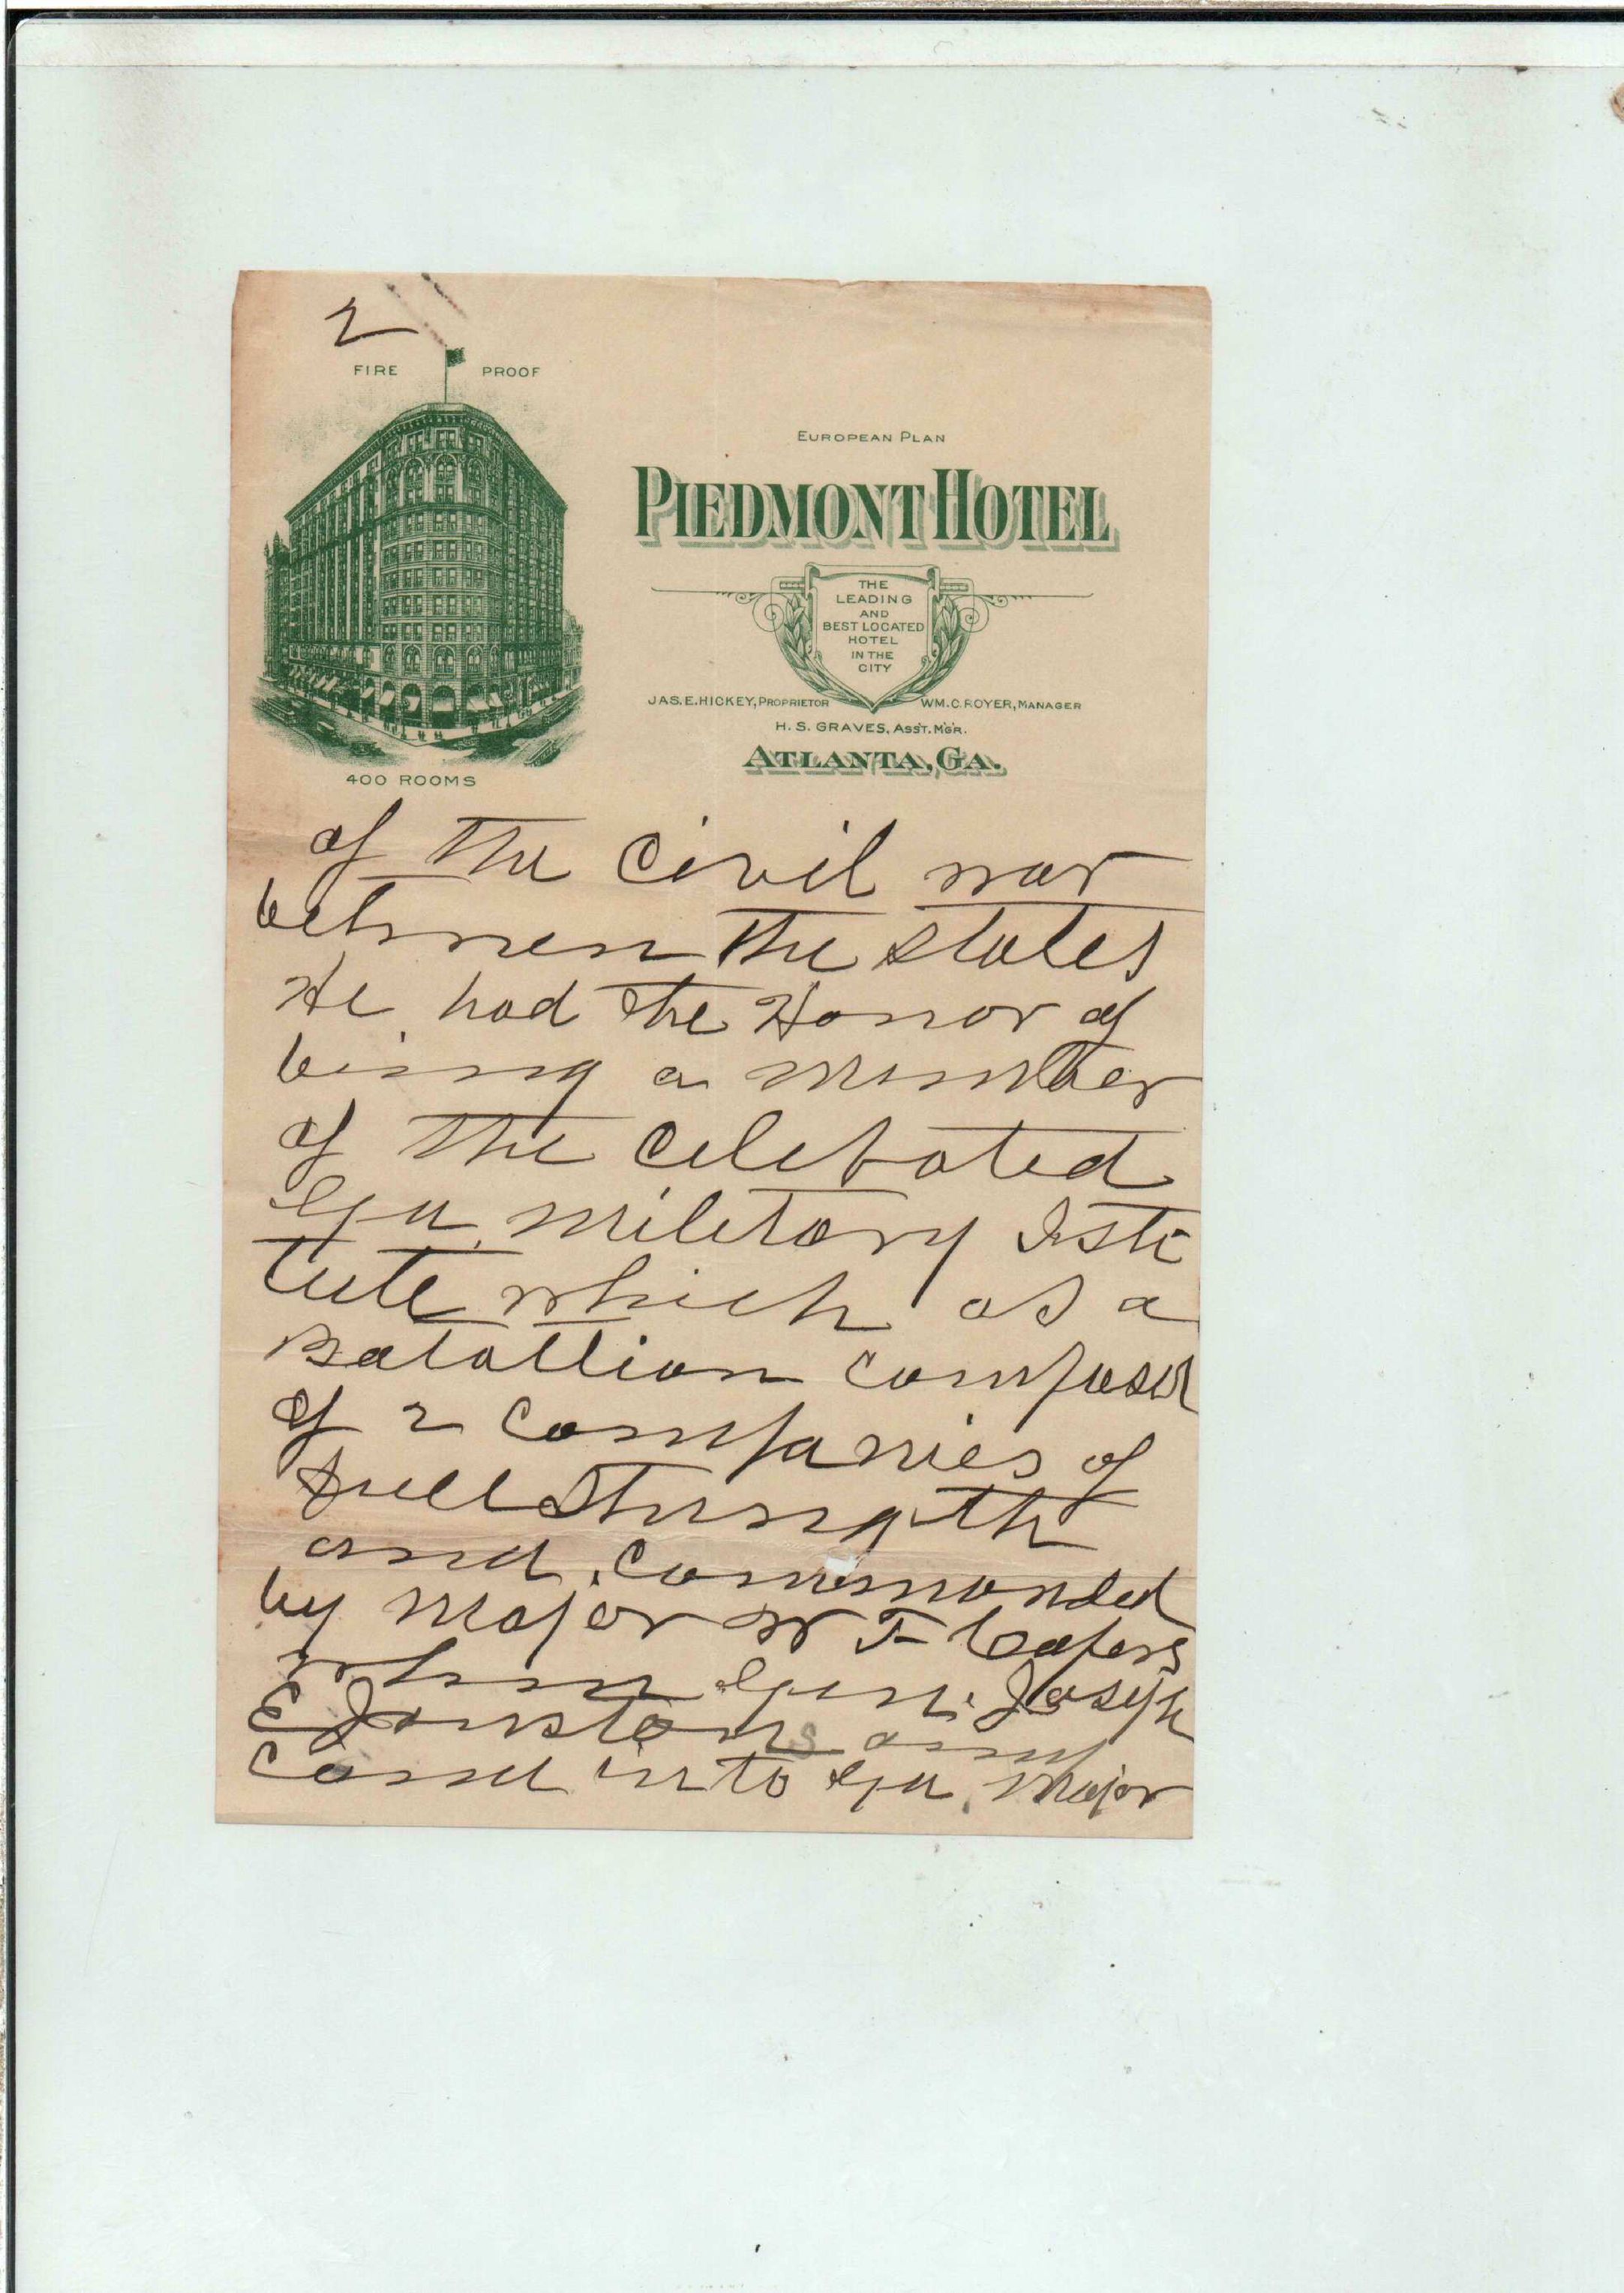 2
FIRE PROOF
EUROPEAN PLAN
PIEDMONT HOTEL
THE
LEADING
AND
BEST LOCATED
HOTEL
IN THE
CITY
JAS. E. HICKEY, PROPRIETOR WM. C. ROYER, MANAGER
H. S. GRAVES, ASS'T. M'G'R.
ATLANTA, GA.
400 ROOMS
of the Civil war
between the States
He had the Honor of
being a member
of the Celebrated
Ga. Military Isti
tute which as a
Batallion composed
of 2 Companies of
full Strength
and Commanded
by Major W F Capers
when Gen. Joseph
E Jonston's army
Came into Ga. Major